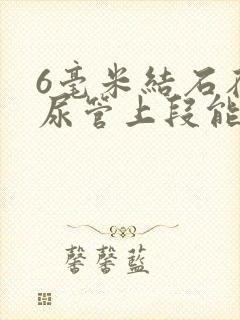 6毫米結石
尿管上段能
馨馨藍